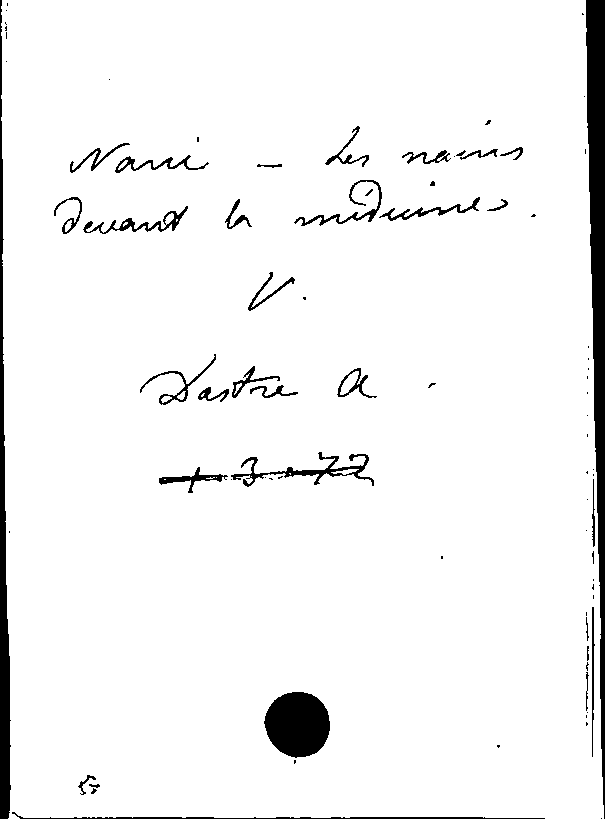 Nani - Les nains
devant la médecine.
V.
Dastre A.
1.3.72